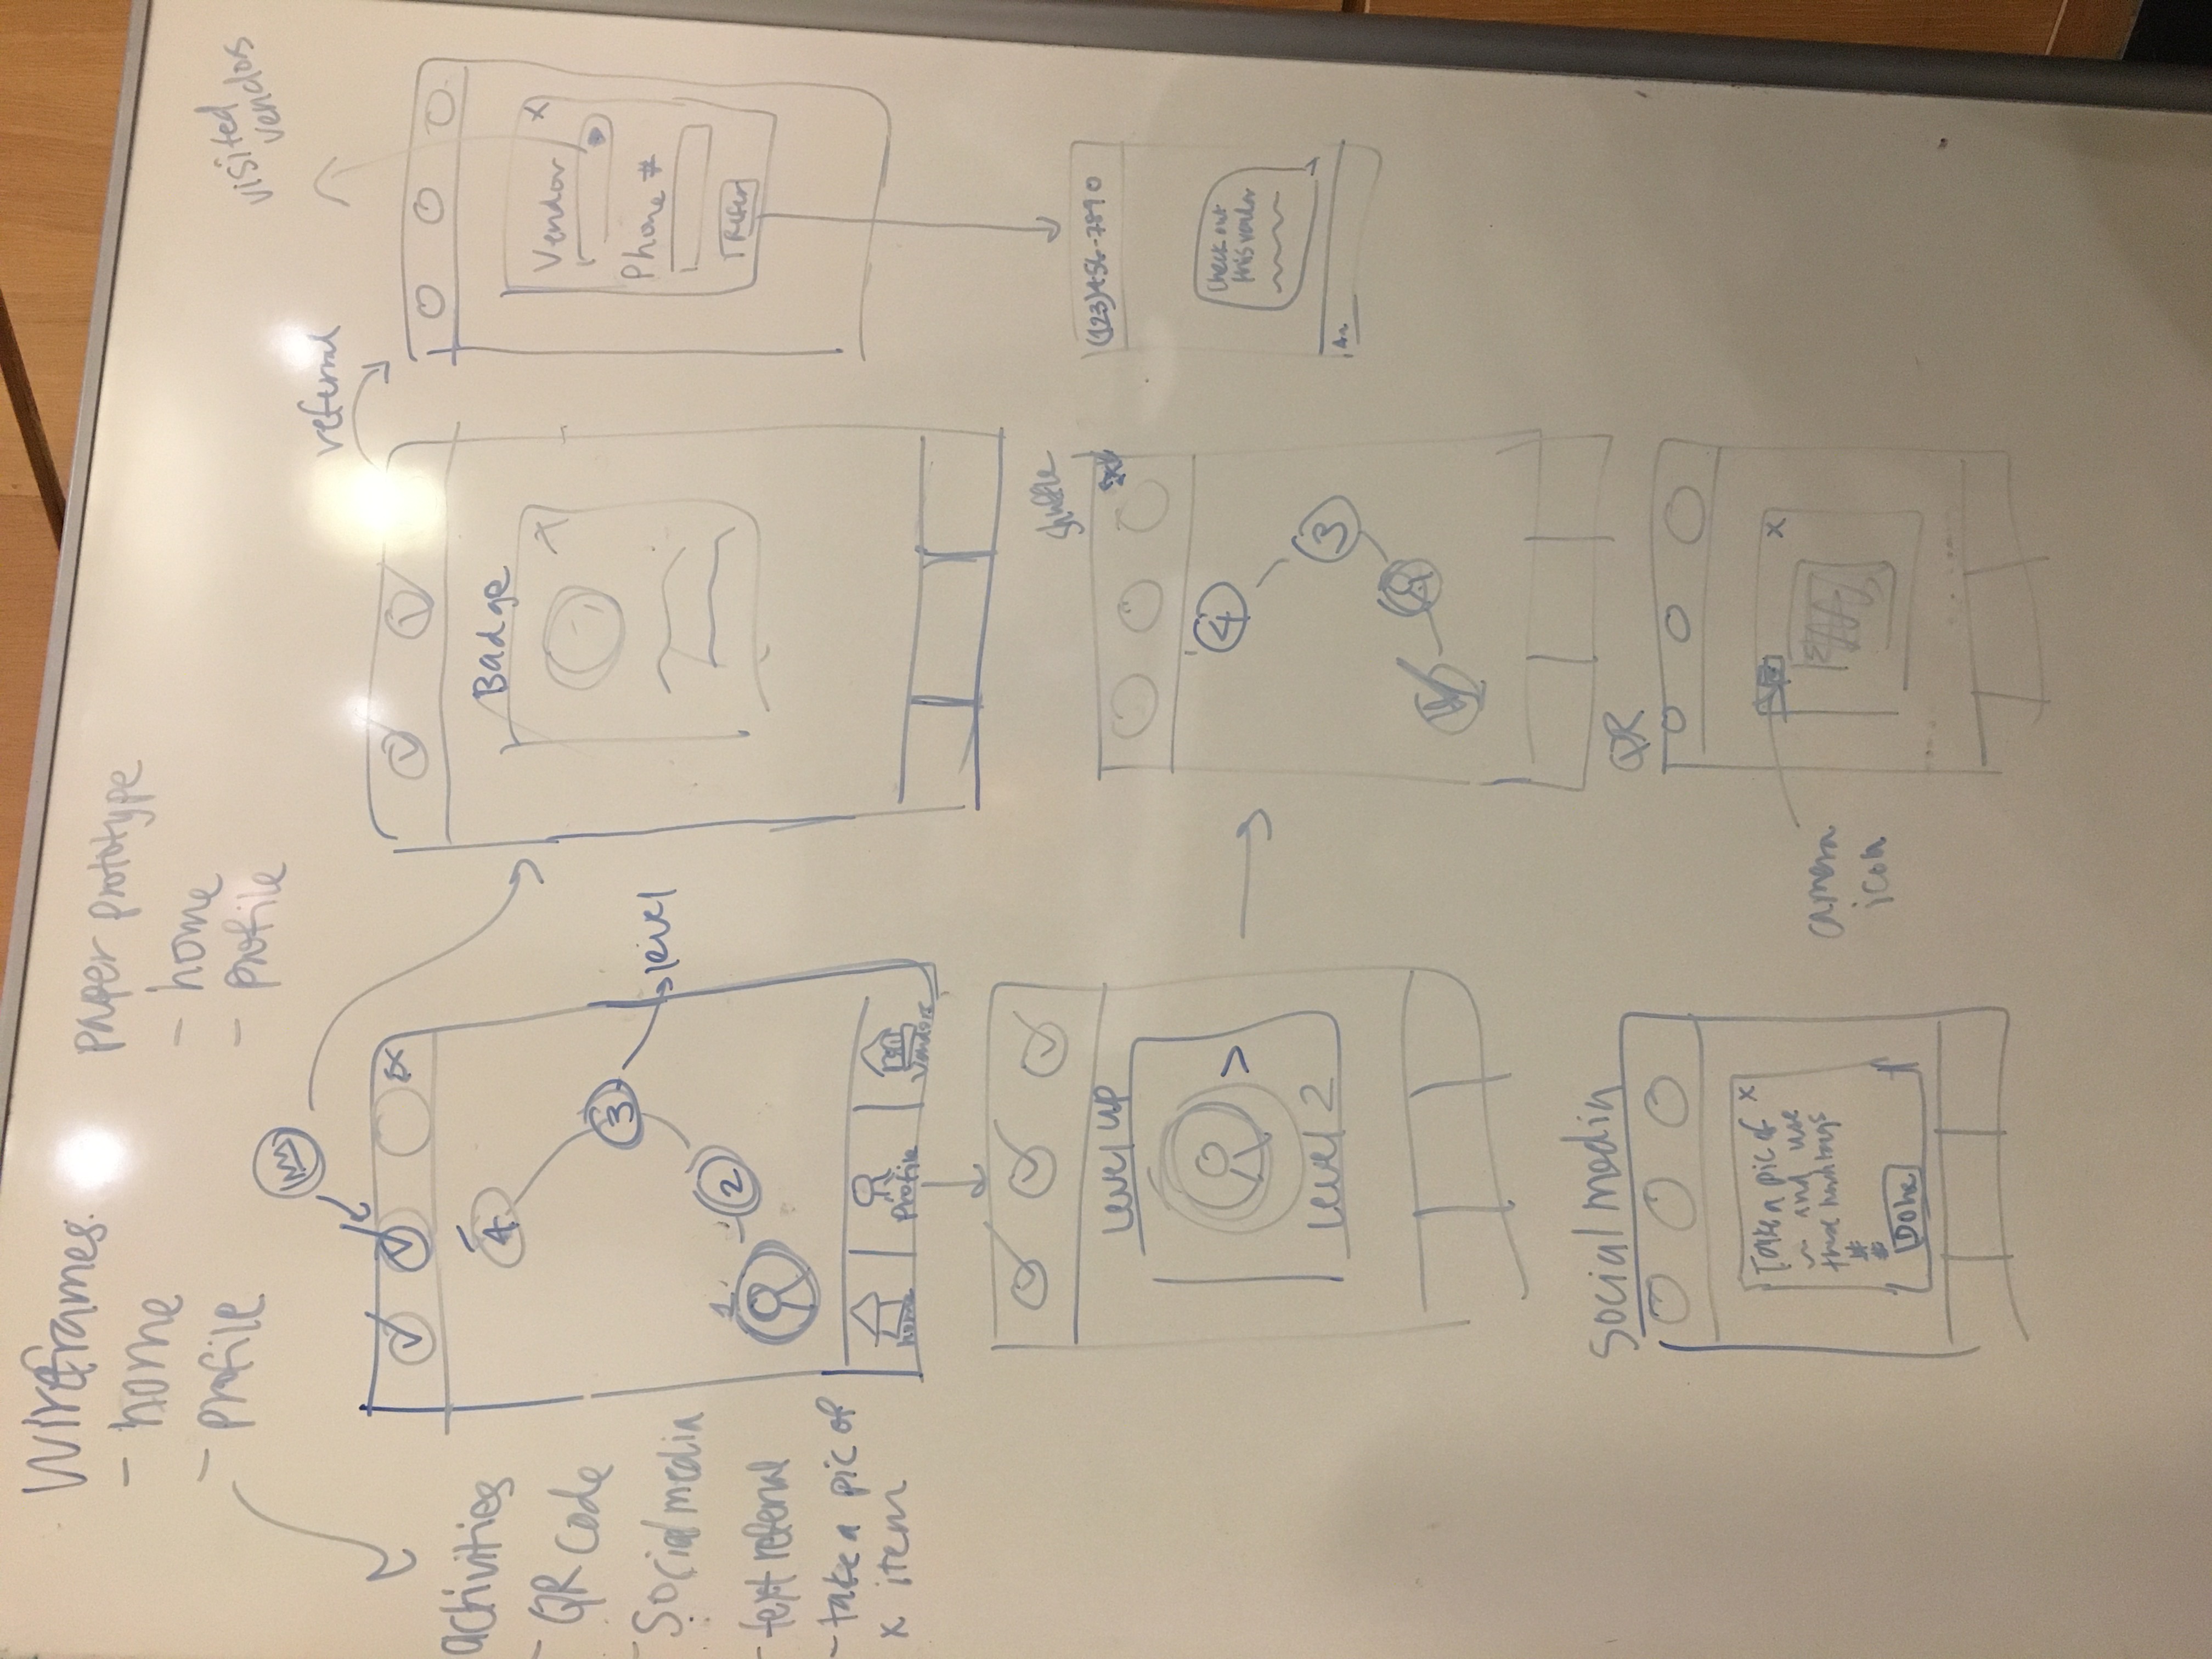 Wireframes:
- home
- profile
paper prototype
- home
- profile
visited
vendors
referral
activities
- QR code
- Social media
- text referral
- take a pic of
x item
4
3
level
2
1
home
Profile
Vendors
Badge
x
Vendor
x
Phone #
Refer
Level up
>
Level 2
Shuffle
4
3
(123)456-7890
Check out
this vendor
Social media
Take a pic of x
~ and use
these hashtags
#
#
Done
QR
x
camera
icon